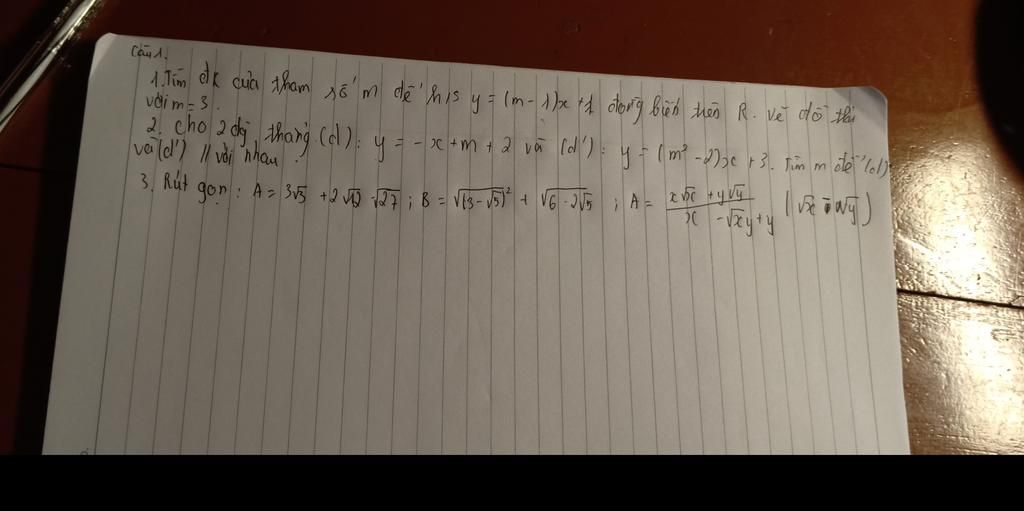 Câu 1.
1. Tìm đk của tham số m để h/s y = (m - 1)x + 1 đồng biến trên R. vẽ đồ thị
với m = 3.
2. Cho 2 đg thẳng (d): y = -x + m + 2 và (d'): y = (m² - 2)x + 3. Tìm m để (d)
và (d') // với nhau
3. Rút gọn: A = 3√3 + 2√12 √27 ; B = √(3 - √5)² + √6 - 2√5 ; A = x√x + y√y / x - √xy + y (√x - √y)